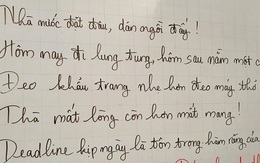 Nhà nước đặt đâu, dân ngồi đấy!
Hôm nay đi lung tung, hôm sau nằm một c
Đeo khẩu trang nhẹ hơn đeo máy thở
Thà mất lòng còn hơn mất mạng!
Deadline kịp ngày là tón trong hàm răng của